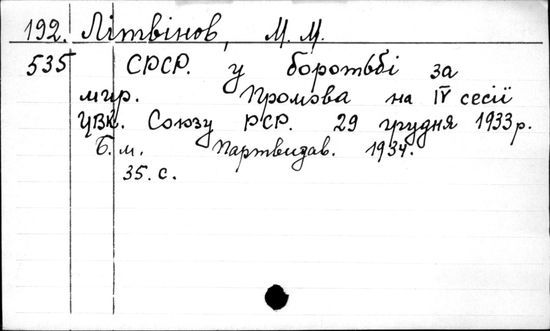 192. Літвінов, М. М.
535 СРСР. у боротьбі за
мир. Промова на IV сесії
ЦВК. Союзу РСР. 29 грудня 1933 р.
Б. м. Партвидав. 1934.
35. с.